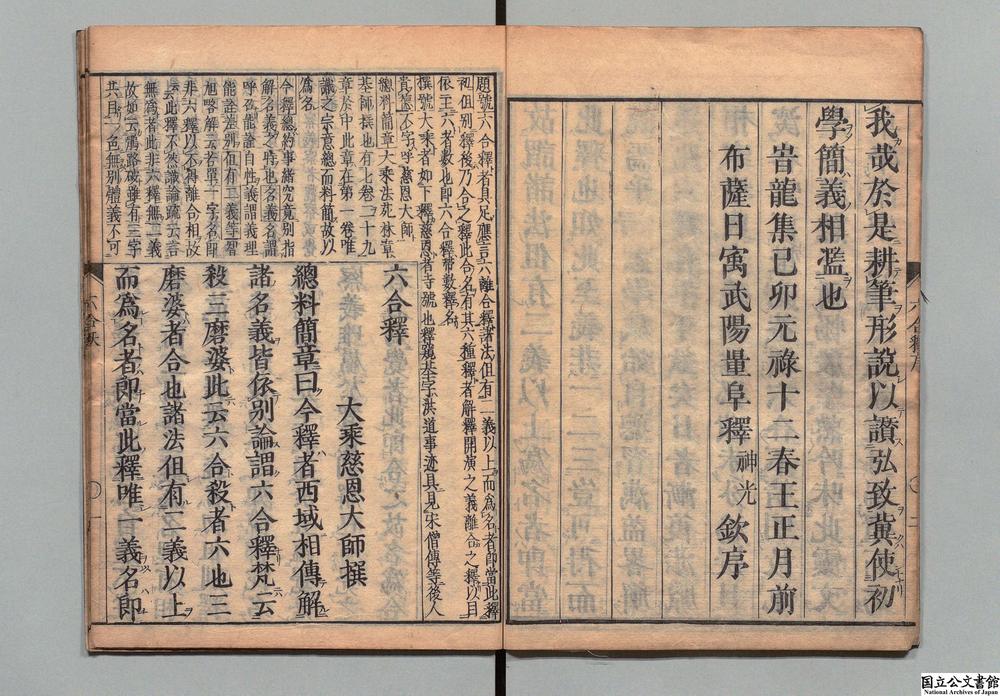 我哉於是耕筆形說以讚弘致冀使初
學簡義相濫也
旹龍集己卯元祿十二春王正月前
布薩日寓武陽量阜釋神光欽序
六合釋序
二
題號六合釋者具足應言六離合釋諸法但有二義以上而為名者即當此釋
初但別釋後乃合之釋此合名有其六種釋者解釋開演之義離合之釋以目
依主六者數也即六合釋帶數釋名
撰號大乘者如下釋慈恩者寺號也釋窺基字洪道事迹具見宋僧傳等後人
貴德不字呼慈恩大師
總料簡章大乘法苑林章
基師撰也有上卷二十九
章於中此章在第一卷唯
識之宗意總而料簡故以
為名
今釋總約事緒究竟別指
解名義之時也名義名謂
呼召能詮自性義謂義理
能詮差別但有二義等智
旭略解云若單一字名即
非六釋以不得離合相故
云此釋不然識論疏云言
無為者此非六釋無二義
故如云
雖有三字
共目一色無別體義不可
六合釋
大乘慈恩大師撰
總料簡章曰今釋者西域相傳解
諸名義皆依別論謂六合釋梵云
殺三磨婆此云六合殺者六也三
磨婆者合也諸法但有二義以上
而為名者即當此釋唯一義名即
国立公文書館
National Archives of Japan